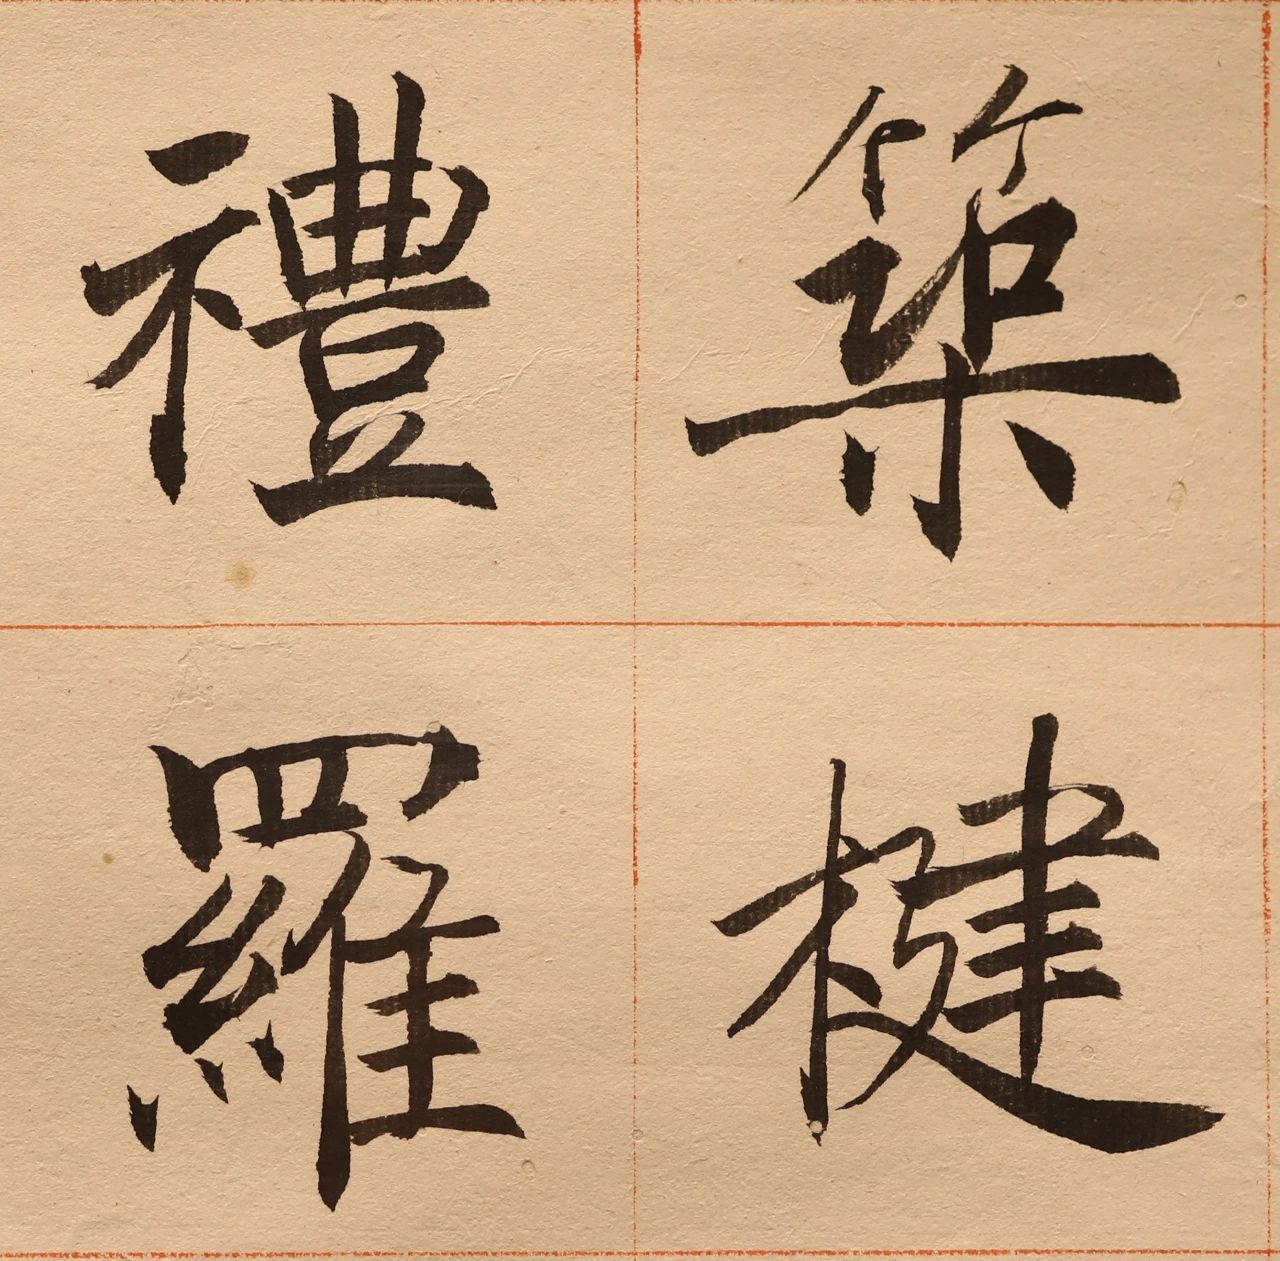 築楗
禮羅